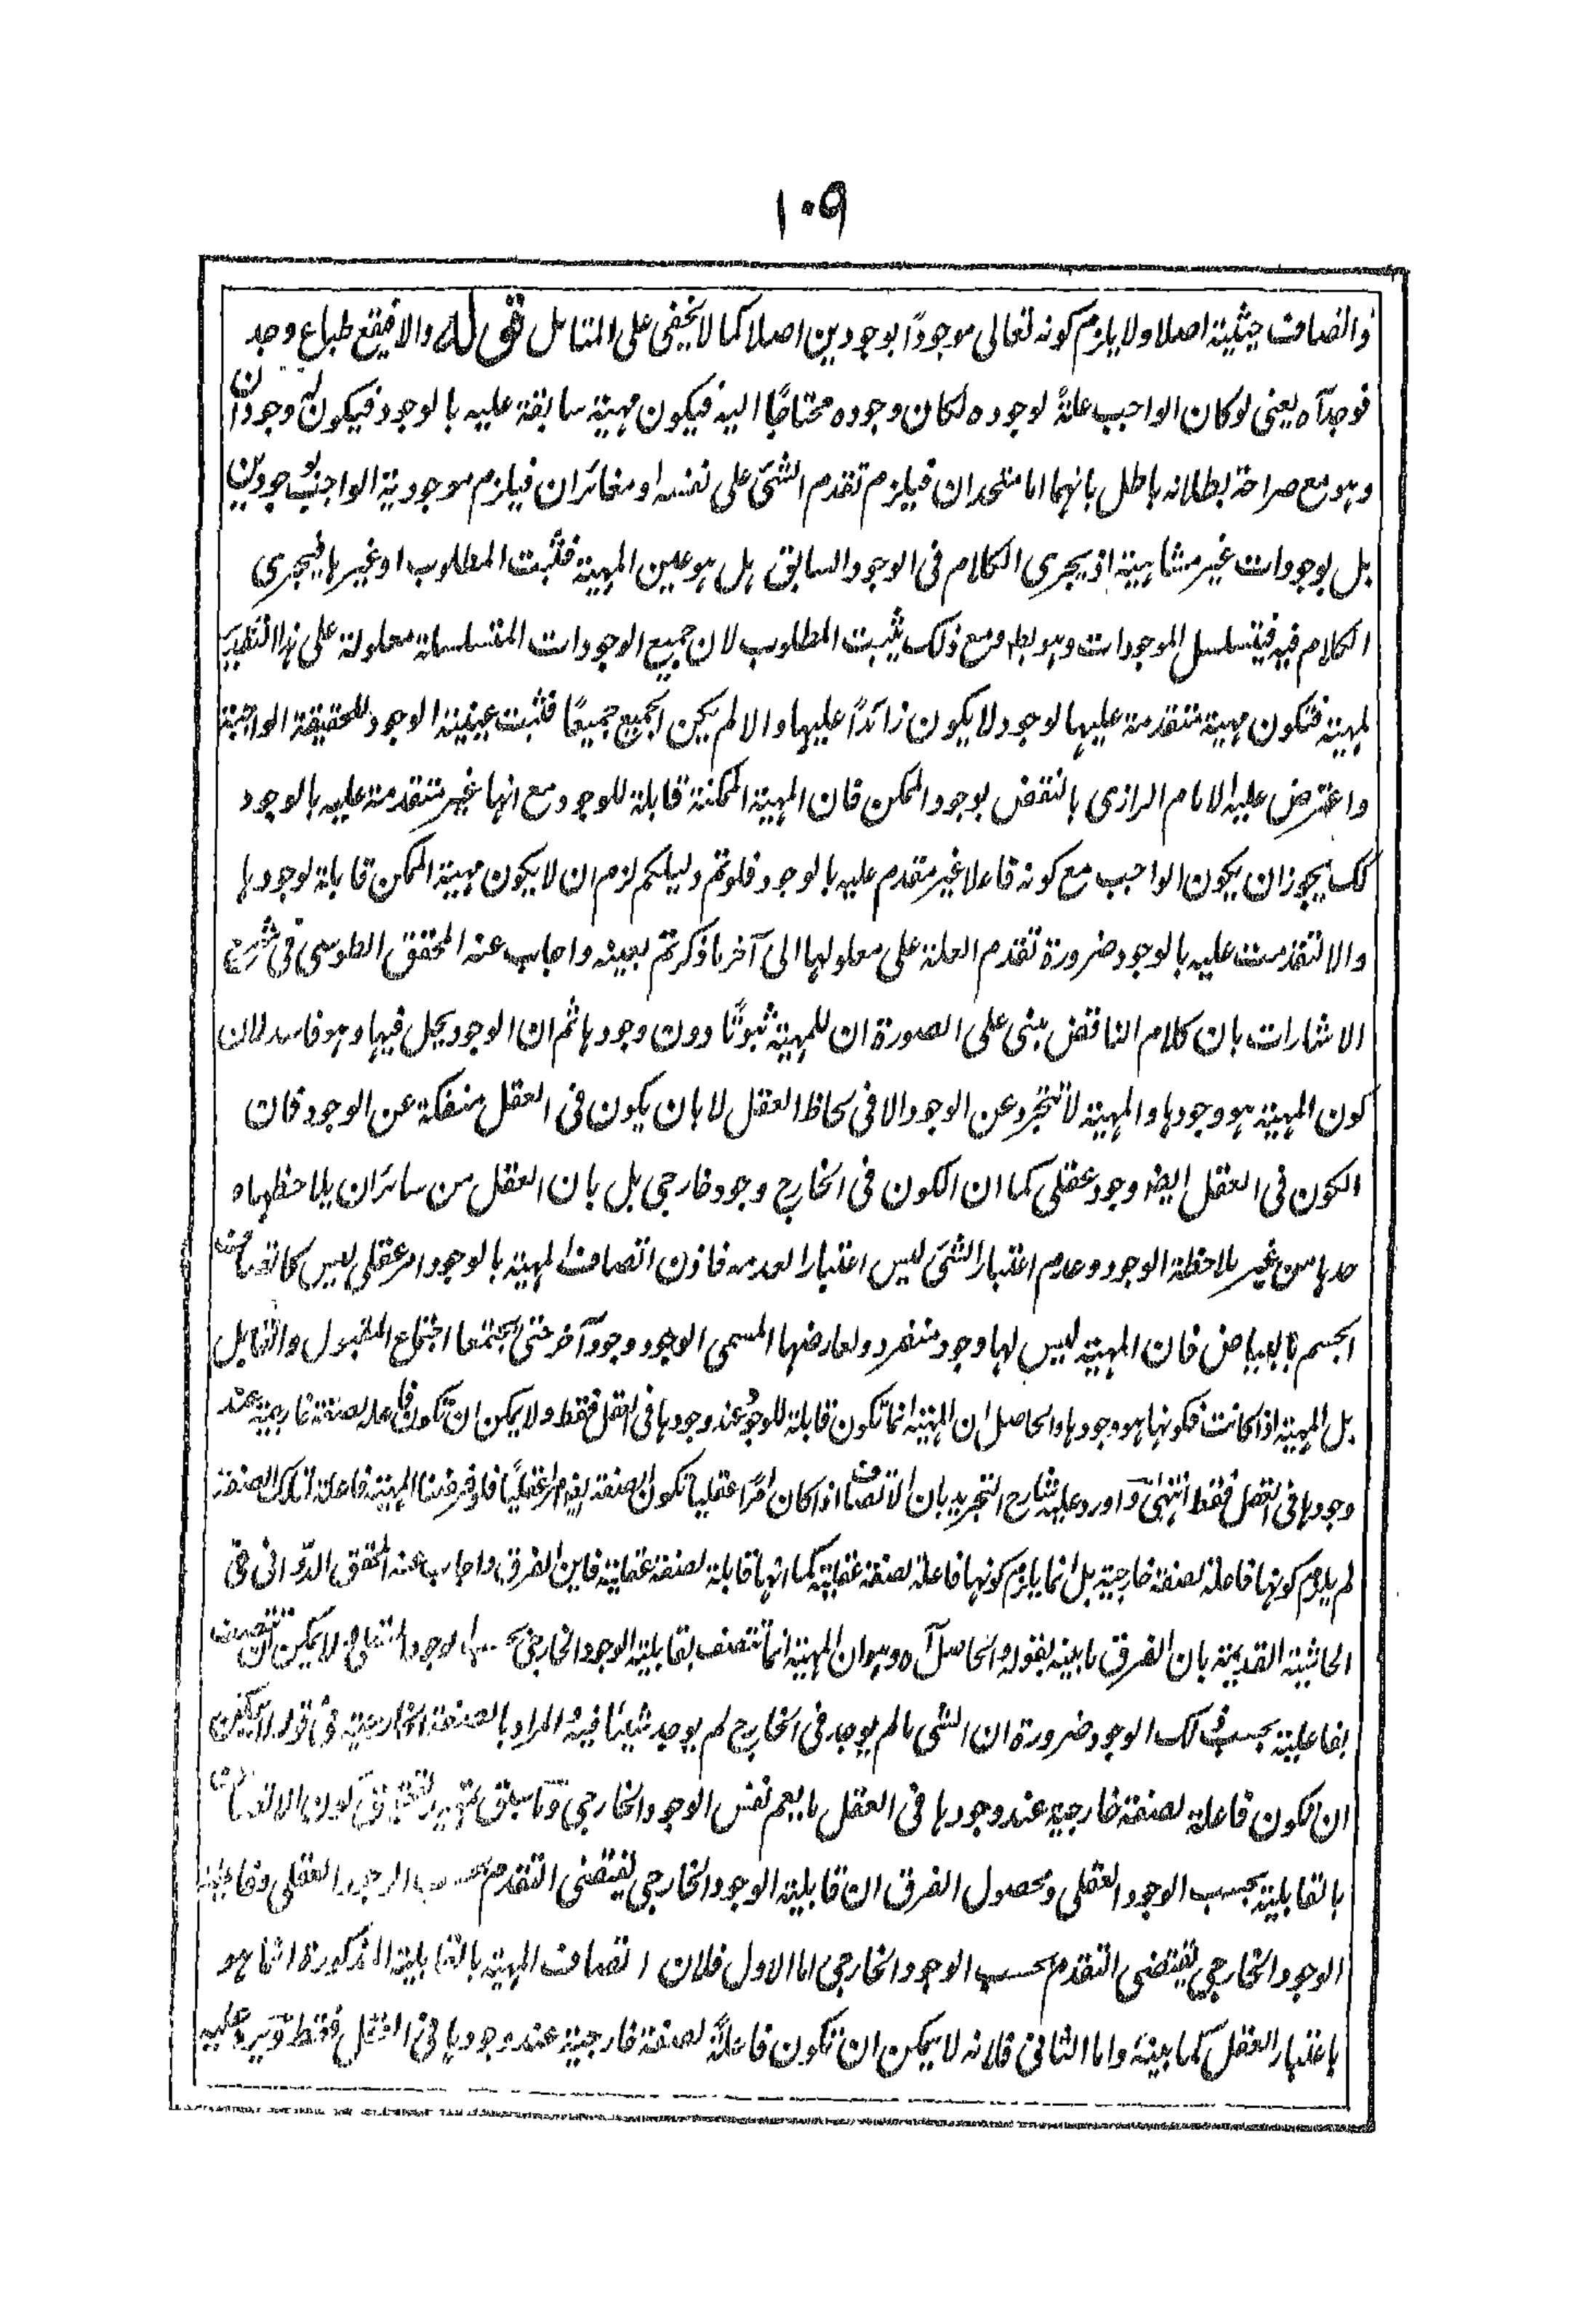 ١٠٩
وانضاف حيثية اصلا ولا يلزم كونه تعالى موجودًا بوجودين اصلا كما لا يخفى على المتامل قوله والا فيقع طباع وجد
فوجد آه يعنى لو كان الواجب علةً لوجوده لكان وجوده محتاجًا اليه فيكون مهية سابقة عليه بالوجود فيكون له وجودان
وهو مع صراحة بطلانه باطل بانهما اما متحدان فيلزم تقدم الشئ على نفسه او مغائران فيلزم موجودية الواجب بوجودين
بل بوجودات غير متناهية اذ يجرى الكلام فى الوجود السابق هل هو عين المهية فثبت المطلوب او غيرها فيجرى
الكلام فيه فيتسلسل الموجودات وهو بط ومع ذلك يثبت المطلوب لان جميع الوجودات المتسلسلة معلولة على هذا التقدير
لمهية فتكون مهية متقدمة عليها لوجود لا يكون زائداً عليها والا لم يكن الجميع جميعًا فثبت عينية الوجود للحقيقة الواجبة
واعترض عليه الامام الرازى بالنقض بوجود الممكن فان المهية الممكنة قابلة للوجود مع انها غير متقدمة عليه بالوجود
كك يجوز ان يكون الواجب مع كونه فاعلا غير مقدم عليه بالوجود فلو تم دليلكم لزم ان لا يكون مهية الممكن قابلة لوجودها
والا لتقدمت عليه بالوجود ضرورة تقدم العلة على معلولها الى آخر ما ذكرتم بعينه واجاب عنه المحقق الطوسى فى شرح
الاشارات بان كلام الناقض مبنى على الصورة ان للمهية ثبوتًا دون وجودها ثم ان الوجود يحل فيها وهو فاسد لان
كون المهية هو وجودها والمهية لا تتجرد عن الوجود الا فى لحاظ العقل لا بان يكون فى العقل منفكة عن الوجود فان
الكون فى العقل ايضا وجود عقلى كما ان الكون فى الخارج وجود خارجى بل بان العقل من سائران يلاحظها و
حدها من غير ملاحظة الوجود وعدم اعتبار الشئ ليس اعتبارا لعدمه فاذن اتصاف المهية بالوجود امر عقلى ليس كاتصاف
الجسم بالبياض فان المهية ليس لها وجود منفرد ولعارضها المسمى الوجود وجود آخر حتى يجتمعا اجتماع المقبول والقابل
بل المهية اذا كانت فكونها هو وجودها والحاصل ان المهية انما تكون قابلة للوجود عند وجودها فى العقل فقط ولا يمكن ان تكون فاعلة لصفة خارجية عند
وجودها فى العقل فقط انتهى واورد عليه شارح التجريد بان الاتصاف اذا كان امرًا عقليا تكون الصفة ايضا امرا عقليًا فلو فرضنا المهية فاعلة لتلك الصفة
لم يلزم كونها فاعلة لصفة خارجية بل انما يلزم كونها فاعلة لصفة عقلية كما انها قابلة لصفة عقلية فاين الفرق واجاب عنه المحقق الدوّانى فى
الحاشية القديمة بان الفرق ما بينه بقوله والحاصل آه وهو ان المهية انما تتصف بقابلية الوجود الخارجى الوجود لا يمكن ان تتصف
بفاعلية بحسب ذلك الوجود ضرورة ان الشى ما لم يوجد فى الخارج لم يوجد شيئا فيه والمراد بالصفة الخارجية فى قوله لا يمكن
ان تكون فاعلة لصفة خارجية عند وجودها فى العقل ما يعم نفس الوجود الخارجى وما سبق تمهيد لتحقيق كون الاتصاف
بالقابلية بحسب الوجود العقلى ومحصول الفرق ان قابلية الوجود الخارجى يقتضى التقدم بحسب الوجود العقلى وفاعلية
الوجود الخارجى يقتضى التقدم بحسب الوجود الخارجى اما الاول فلان اتصاف المهية بالقابلية المذكورة انما هو
باعتبار العقل كما بينه واما الثانى فلانه لا يمكن ان تكون فاعلةً لصفة خارجية عند وجودها فى العقل فقط ويرد عليه